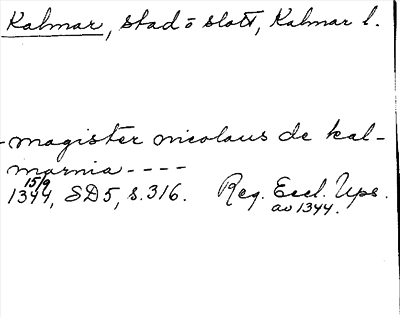 Kalmar, stad o slott, Kalmar l.
-magister nicolaus de kal-
marnia ----
15/9
1344, SD5, s.316. Reg. Eccl. Ups.
av 1344.